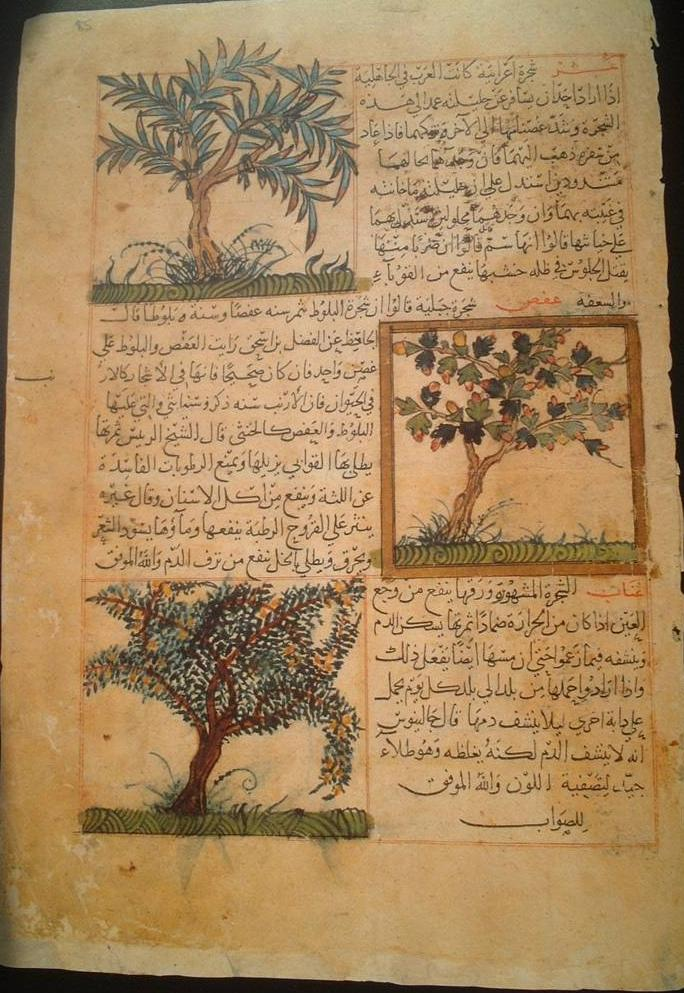 85
عشر شجرة اعرابية كانت العرب في الجاهلية
اذا اراد احدان يسافر عن حليلته عمد الى هذه
الشجرة وشد غصنا منها الى الآخر وتركهما فاذا عاد
من سفره ذهب اليهما فان وجدهما بحالهما
استدل على ان حليلته ما خانته
في غيبته وان وجدهما محلولين استدل بهما
على خيانتها قالوا انها سم قالوا ان ضربا منها
يقتل الجلوس في ظله خشبها ينفع من القوباء
والسعفة عفص شجرة جبلية قالوا ان شجرة البلوط تثمر سنه عفصا وسنة بلوطا قال
الجاحظ عن الفضل بن اسحق رايت العفص والبلوط على
غصن واحد فان كان صحيحا فانها في الاشجار كالارنب
في الحيوان فان الارنب سنه ذكر وسنه انثى والتي عليها
البلوط والعفص كالخنثى قال الشيخ الرئيس ثمرتها
يطلى بها القوابي يزيلها ويمنع الرطوبات الفاسدة
عن اللثة وينفع من اكل الاسنان وقال غيره
ينثر على القروح الرطبة ينفعها وماؤها يسود الشعر
ويحرق ويطلى بالخل ينفع من نزف الدم والله الموفق
عناب الشجرة المشهورة ورقها ينفع من وجع
العين اذا كان من الحرارة ضمادا ثمرتها يسكن الدم
وينشفه فيما زعموا حتى ان مسها ايضا يفعل ذلك
واذا ارادوا حملها من بلد الى بلد كل يوم يحمل
على دابة اخرى ليلا ينشف دمها قال جالينوس
انه لا ينشف الدم لكنه يغلظه وهو طلاء
جيد لتصفية اللون والله الموفق
للصواب